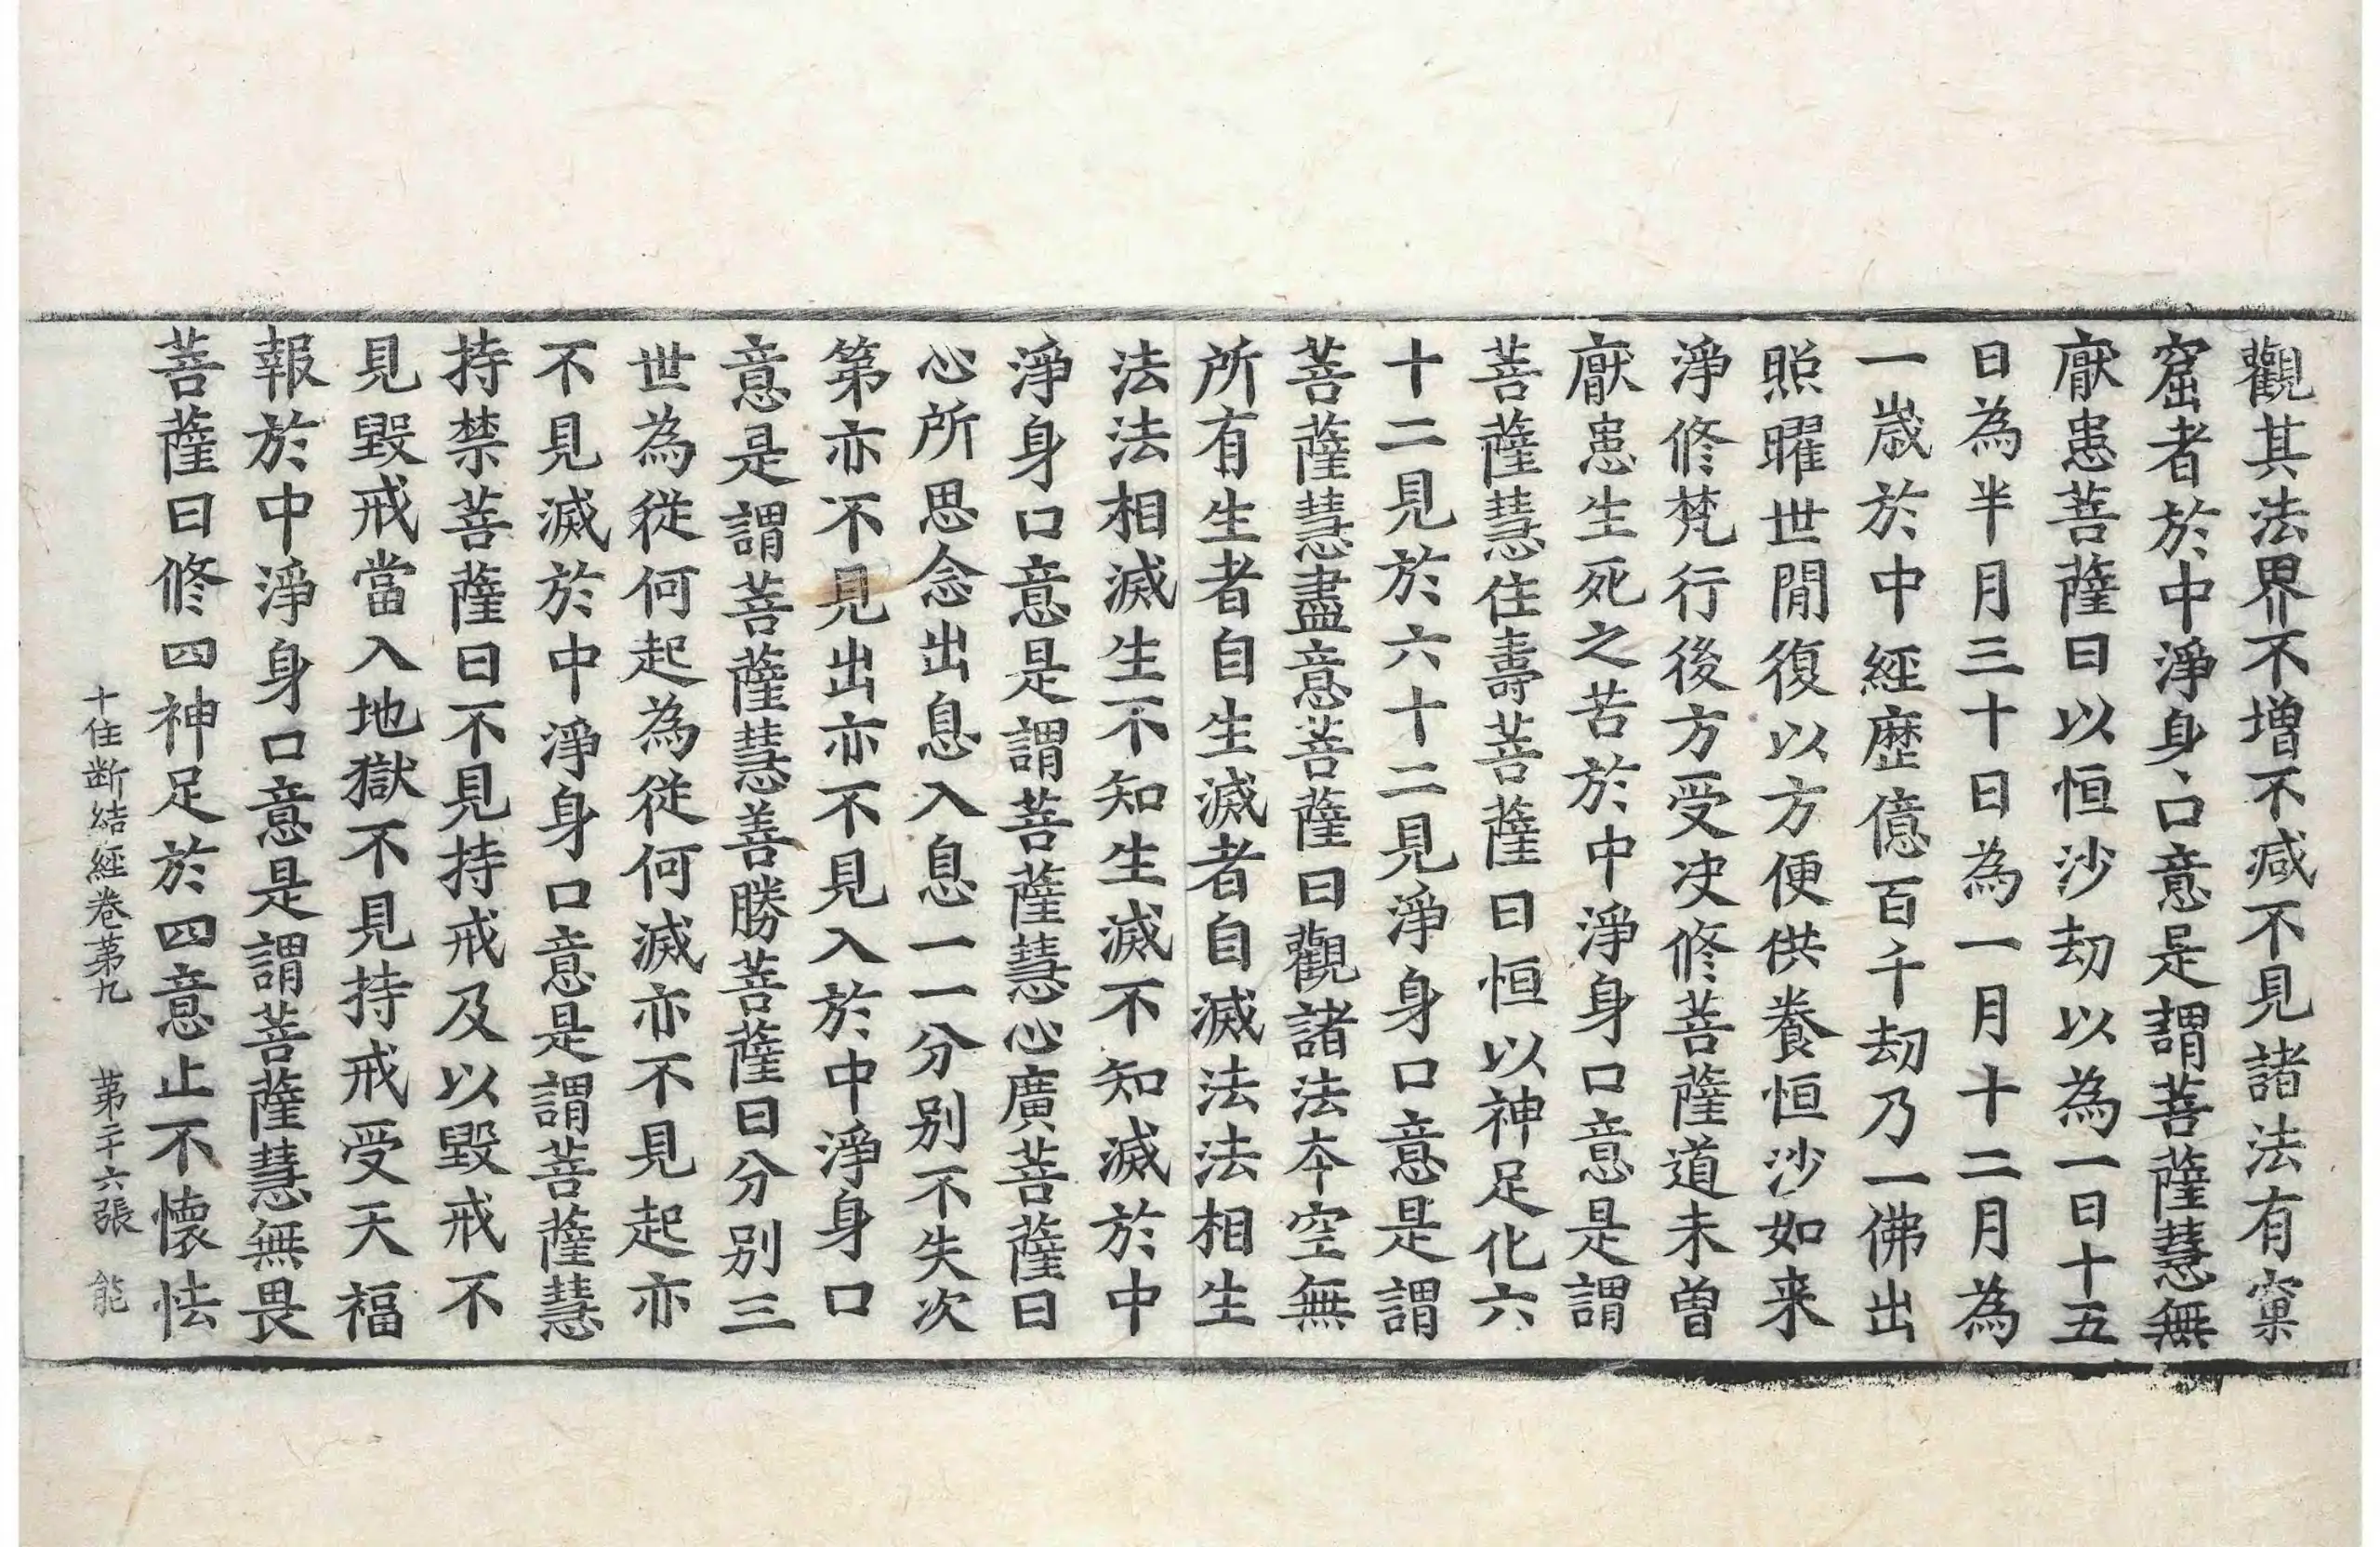 觀其法界不增不减不見諸法有窠
窟者於中淨身口意是謂菩薩慧無
厭患菩薩曰以恒沙劫以為一日十五
日為半月三十日為一月十二月為
一歳於中經歷億百千劫乃一佛出
照曜世閒復以方便供養恒沙如来
淨修梵行後方受決修菩薩道未曾
厭患生死之苦於中淨身口意是謂
菩薩慧住壽菩薩曰恒以神足化六
十二見於六十二見淨身口意是謂
菩薩慧盡意菩薩曰觀諸法夲空無
所有生者自生滅者自滅法法相生
法法相滅生不知生滅不知滅於中
淨身口意是謂菩薩慧心廣菩薩曰
心所思念出息入息一一分别不失次
第亦不見出亦不見入於中淨身口
意是謂菩薩慧善勝菩薩曰分别三
世為從何起為從何滅亦不見起亦
不見滅於中淨身口意是謂菩薩慧
持禁菩薩曰不見持戒及以毀戒不
見毀戒當入地獄不見持戒受天福
報於中淨身口意是謂菩薩慧無畏
菩薩曰修四神足於四意止不懷怯
十住断結經卷第九　第二十六張　能